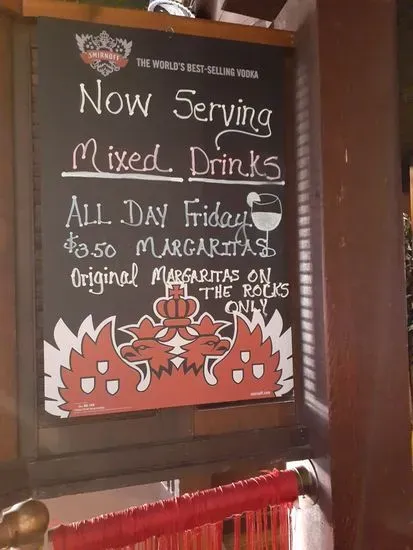 SMIRNOFF
THE WORLD'S BEST-SELLING VODKA
Now Serving
Mixed Drinks
ALL DAY Friday
$3.50 MARGARITAS
Original MARGARITAS ON
THE ROCKS
ONLY